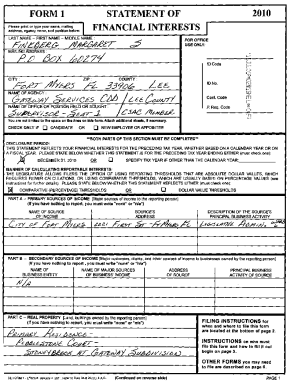 FORM 1 STATEMENT OF 2010
Please print or type your name, mailing address, agency name, and position below: FINANCIAL INTERESTS
LAST NAME -- FIRST NAME -- MIDDLE NAME
FINEBERG MARGARET S
MAILING ADDRESS
P.O BOX 60274
FOR OFFICE USE ONLY:
CITY ZIP COUNTY
FORT MYERS FL 33906 LEE
NAME OF AGENCY
GATEWAY SERVICES CDD / LEE COUNTY
NAME OF OFFICE OR POSITION HELD OR SOUGHT
SUPERVISOR - SEAT 1 CSAC MEMBER
You are not limited to the space on the lines on this form. Attach additional sheets, if necessary.
CHECK ONLY IF CANDIDATE OR NEW EMPLOYEE OR APPOINTEE
ID Code
ID No.
Conf. Code
P. Req. Code
**BOTH PARTS OF THIS SECTION MUST BE COMPLETED**
DISCLOSURE PERIOD:
THIS STATEMENT REFLECTS YOUR FINANCIAL INTERESTS FOR THE PRECEDING TAX YEAR, WHETHER BASED ON A CALENDAR YEAR OR ON A FISCAL YEAR. PLEASE STATE BELOW WHETHER THIS STATEMENT IS FOR THE PRECEDING TAX YEAR ENDING EITHER (must check one):
DECEMBER 31, 2010 OR SPECIFY TAX YEAR IF OTHER THAN THE CALENDAR YEAR:
MANNER OF CALCULATING REPORTABLE INTERESTS:
THE LEGISLATURE ALLOWS FILERS THE OPTION OF USING REPORTING THRESHOLDS THAT ARE ABSOLUTE DOLLAR VALUES, WHICH REQUIRES FEWER CALCULATIONS, OR USING COMPARATIVE THRESHOLDS, WHICH ARE USUALLY BASED ON PERCENTAGE VALUES (see instructions for further details). PLEASE STATE BELOW WHETHER THIS STATEMENT REFLECTS EITHER (must check one):
COMPARATIVE (PERCENTAGE) THRESHOLDS OR DOLLAR VALUE THRESHOLDS
PART A -- PRIMARY SOURCES OF INCOME [Major sources of income to the reporting person]
(If you have nothing to report, you must write "none" or "n/a")
NAME OF SOURCE OF INCOME SOURCE'S ADDRESS DESCRIPTION OF THE SOURCE'S PRINCIPAL BUSINESS ACTIVITY
CITY OF FORT MYERS FIRST ST - FT MYERS, FL LEGISLATIVE ADMIN.
PART B -- SECONDARY SOURCES OF INCOME [Major customers, clients, and other sources of income to businesses owned by the reporting person]
(If you have nothing to report, you must write "none" or "n/a")
NAME OF BUSINESS ENTITY NAME OF MAJOR SOURCES OF BUSINESS' INCOME ADDRESS OF SOURCE PRINCIPAL BUSINESS ACTIVITY OF SOURCE
N/A
PART C -- REAL PROPERTY [Land, buildings owned by the reporting person]
(If you have nothing to report, you must write "none" or "n/a")
PRIMARY RESIDENCE -
PEBBLESTONE COURT -
STONEYBROOK AT GATEWAY SUBDIVISION
FILING INSTRUCTIONS for when and where to file this form are located at the bottom of page 2.
INSTRUCTIONS on who must file this form and how to fill it out begin on page 3.
OTHER FORMS you may need to file are described on page 6.
(Continued on reverse side) PAGE 1